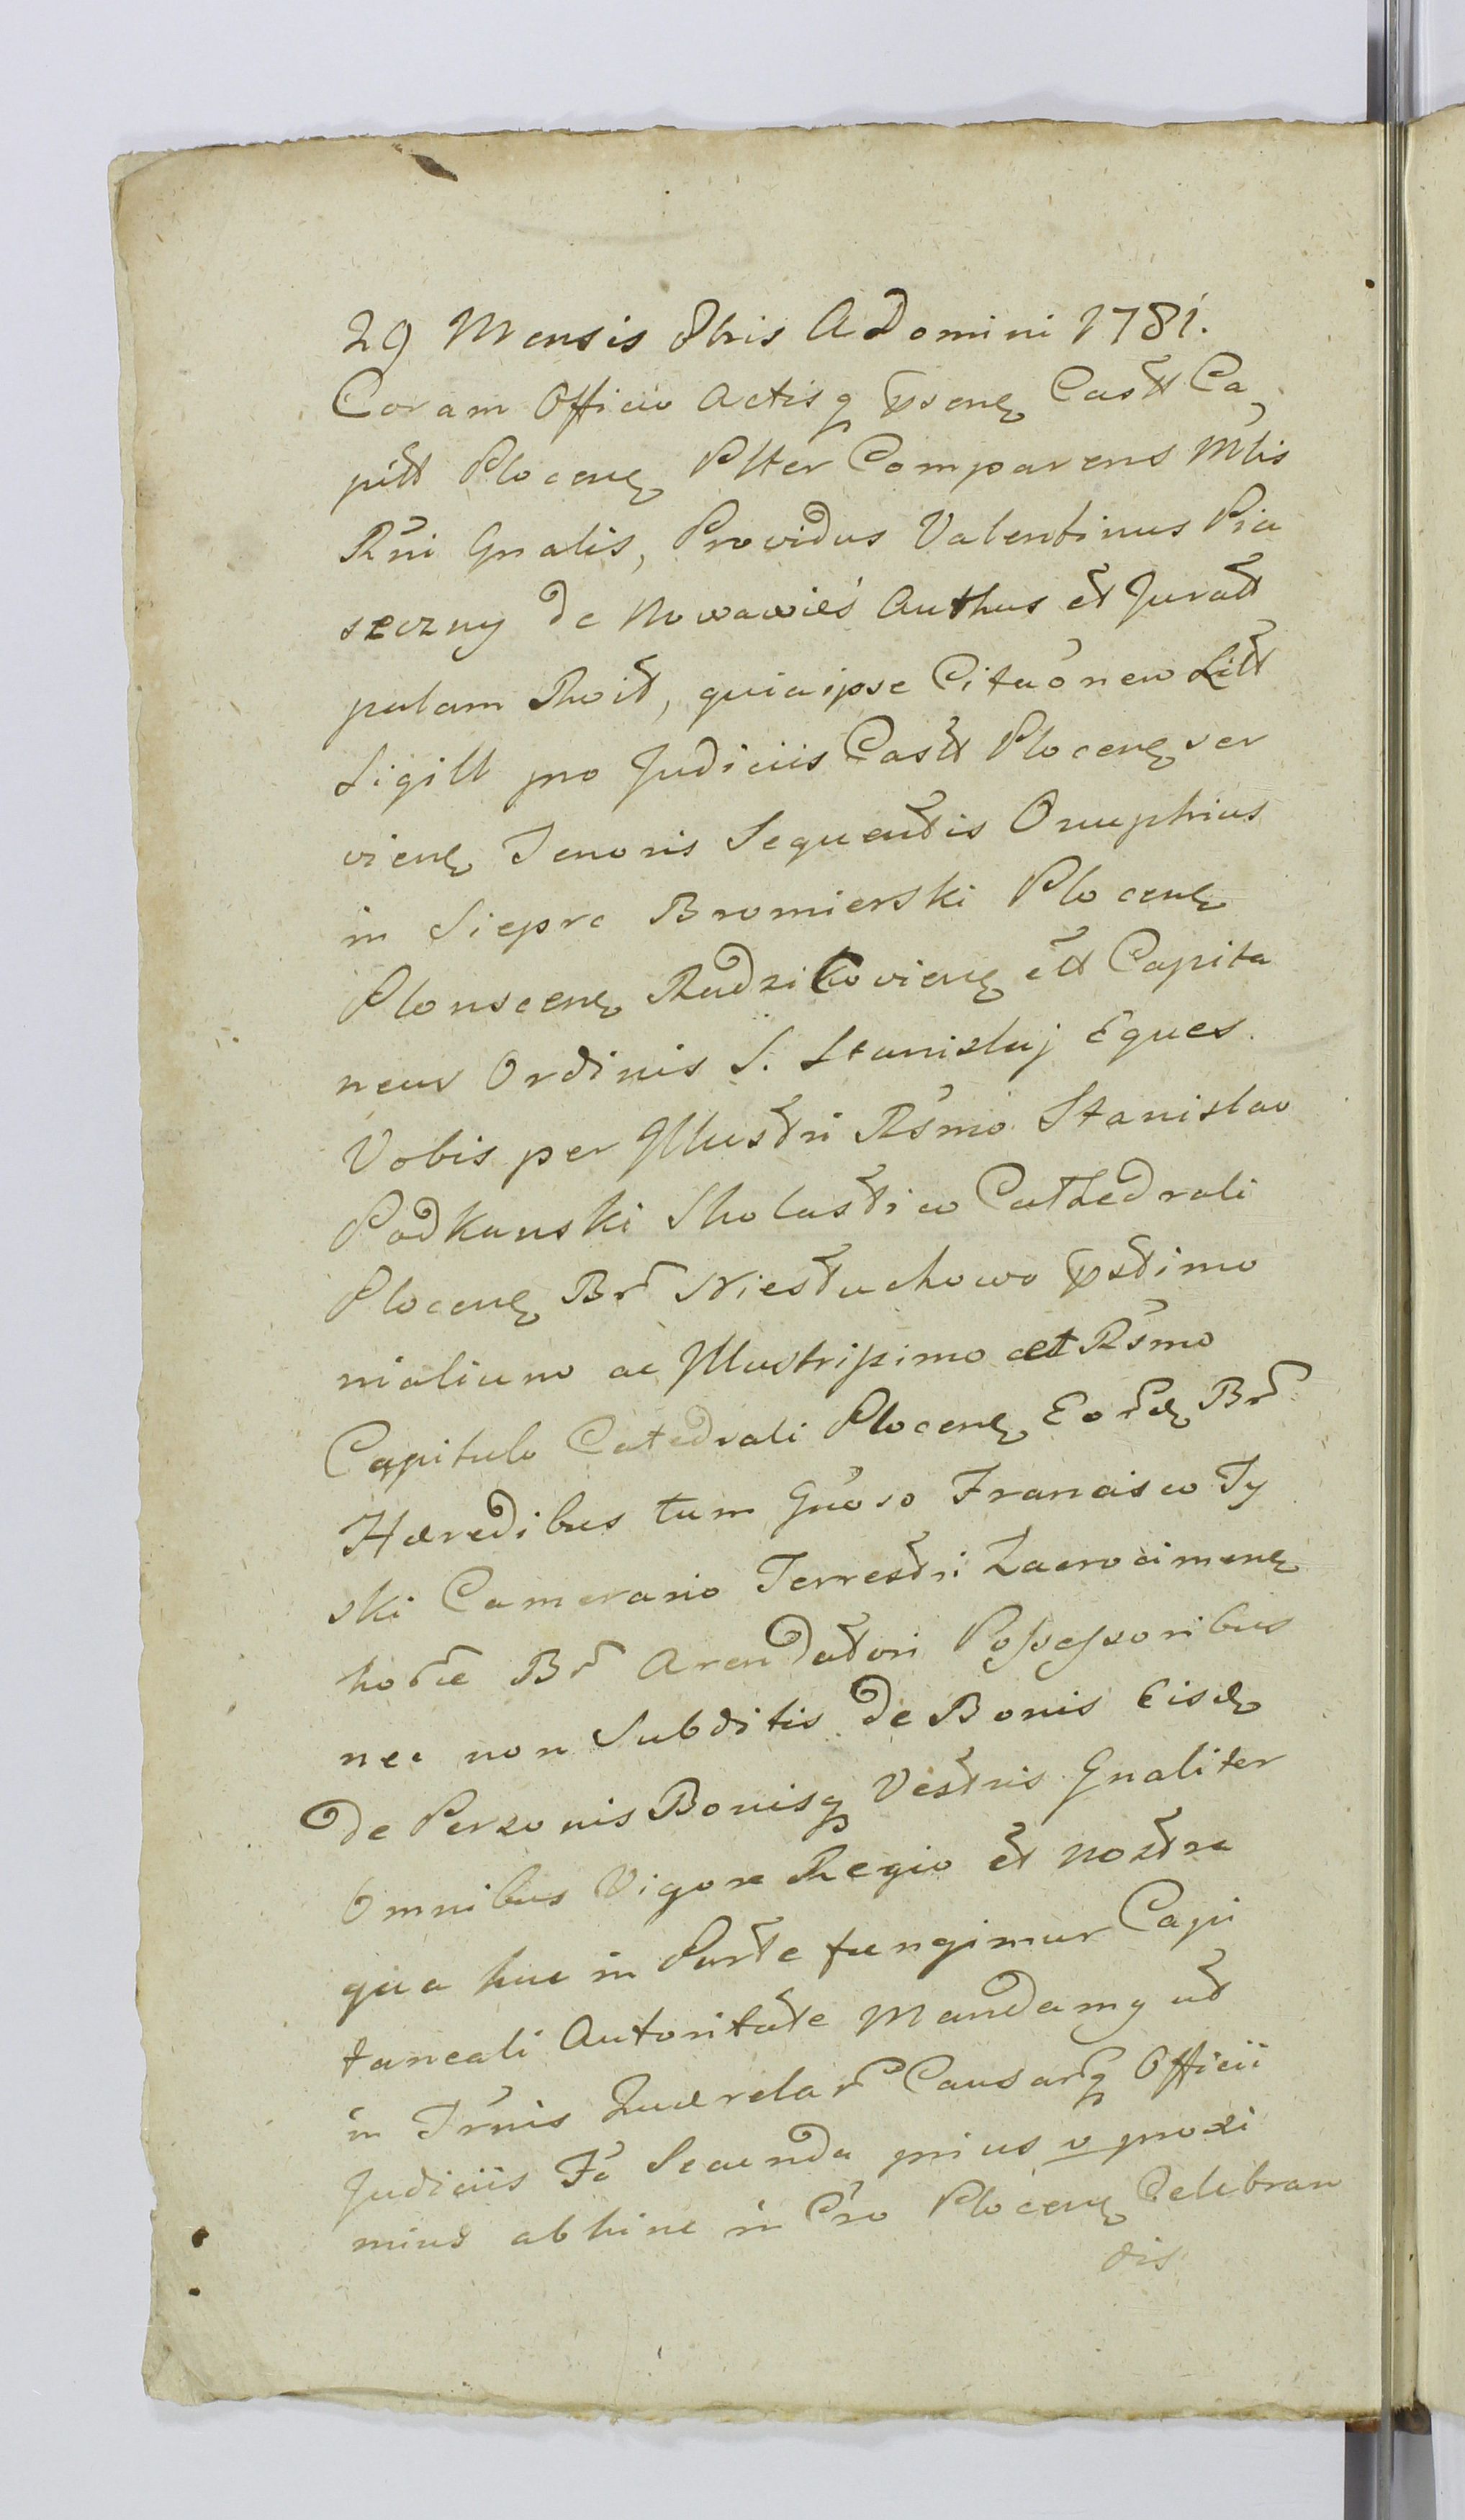 29 Mensis 8bris A Domini 1781.
Coram Officio Actisq psenę Castt Ca
pitt Plocenę Pltter Comparens Mtis
Rni Gnalis, Providus Valentinus Pia
seczny de Nowawieś Authus et Juratt
palam Rkoit, quia ipse Citaonem Litt
Sigill pro Judiciis Castt Plocenę ser
vienę Tenoris Sequentis Onuphrius
in Sieprc Bromierski Plocenę
Plonscenę Radzikovienę ett Capita
neus Ordinis S. Stanislaj Eques.
Vobis per Illustri Rsmo Stanislao
Podkanski Sholastico Cathedrali
Plocenę Br Niestuchowo pstimo
nialium ac Illustrissimo aet Rsmo
Capitulo Catedrali Plocenę Eordę Br
Hæredibus tum Gnoso Francisco Ty
ski Camerario Terrestri Zacrocimenę
horce Br Arendatori Possessoribus
nec non Subditis de Bonis Eisdę
de Personis Bonisq Vestris Gnaliter
Omnibus Vigore Regio et nostra
qua hac in Parte fungimur Capi
taneali Autoritate Mandamy ut
in Trnis Quærelar Causarq Officii
Judiciis Fa Secunda prius v proxi
mius abhinc in Cro Plocenę Celebran
dis